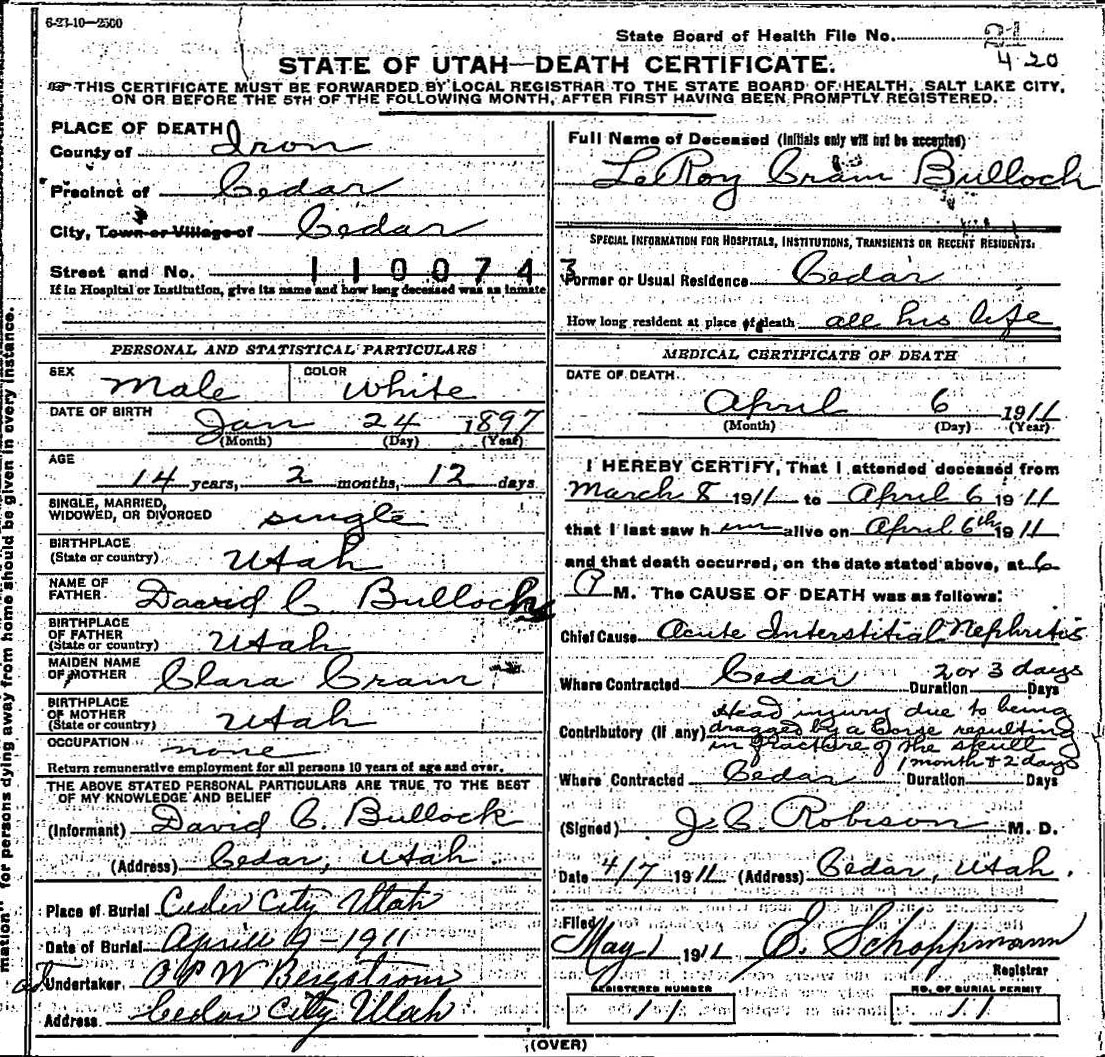 6-23-10—2500
State Board of Health File No. 21
420
STATE OF UTAH—DEATH CERTIFICATE.
THIS CERTIFICATE MUST BE FORWARDED BY LOCAL REGISTRAR TO THE STATE BOARD OF HEALTH, SALT LAKE CITY,
ON OR BEFORE THE 5TH OF THE FOLLOWING MONTH, AFTER FIRST HAVING BEEN PROMPTLY REGISTERED.
mation" for persons dying away from home should be given in every instance.
PLACE OF DEATH
County of Iron
Precinct of Cedar
City, Town or Village of Cedar
Street and No. 1100743
If in Hospital or Institution, give its name and how long deceased was an inmate
PERSONAL AND STATISTICAL PARTICULARS
SEX Male COLOR White
DATE OF BIRTH
Jan 24 1897
(Month) (Day) (Year)
AGE
14 years, 2 months, 12 days
SINGLE, MARRIED,
WIDOWED, OR DIVORCED single
BIRTHPLACE
(State or country) Utah
NAME OF
FATHER David C. Bullock
BIRTHPLACE
OF FATHER
(State or country) Utah
MAIDEN NAME
OF MOTHER Clara Cram
BIRTHPLACE
OF MOTHER
(State or country) Utah
OCCUPATION none
Return remunerative employment for all persons 10 years of age and over.
THE ABOVE STATED PERSONAL PARTICULARS ARE TRUE TO THE BEST
OF MY KNOWLEDGE AND BELIEF
(Informant) David C. Bullock
(Address) Cedar, Utah.
Place of Burial Cedar City Utah
Date of Burial April 9-1911
Undertaker O P W Bergstrom
Address Cedar City Utah
Full Name of Deceased (Initials only will not be accepted)
LeRoy Cram Bullock
SPECIAL INFORMATION FOR HOSPITALS, INSTITUTIONS, TRANSIENTS OR RECENT RESIDENTS:
Former or Usual Residence Cedar
How long resident at place of death all his life
MEDICAL CERTIFICATE OF DEATH
DATE OF DEATH
April 6 1911
(Month) (Day) (Year)
I HEREBY CERTIFY, That I attended deceased from
March 8 1911 to April 6 1911
that I last saw h im alive on April 6th 1911
and that death occurred, on the date stated above, at 6
P M. The CAUSE OF DEATH was as follows:
Chief Cause Acute Interstitial Nephritis
Where Contracted Cedar Duration 2 or 3 days Days
Head injury due to being
Contributory (if any) dragged by a horse resulting
in fracture of the skull
1 month & 2 days
Where Contracted Cedar Duration Days
(Signed) J. C. Robison M. D.
Date 4/7 1911 (Address) Cedar, Utah.
Filed
May 1 1911 E. Schoppmann
Registrar
REGISTERED NUMBER
11
NO. OF BURIAL PERMIT
11
(OVER)